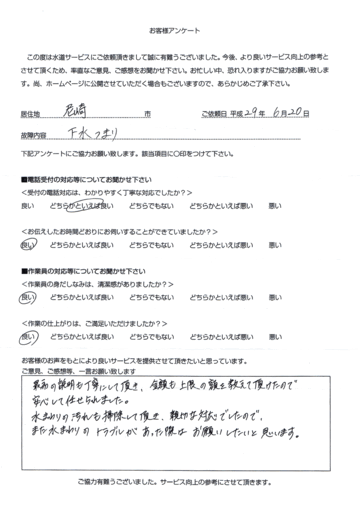 お客様アンケート
この度は水道サービスにご依頼頂きまして誠に有難うございました。今後、より良いサービス向上の参考と
させて頂くため、率直なご意見、ご感想をお聞かせ下さい。お忙しい中、恐れ入りますがご協力お願い致しま
す。尚、ホームページに公開させていただく場合もございますので、あらかじめご了承下さい。
居住地 尼崎 市 ご依頼日 平成 29年 6月20日
故障内容 下水つまり
下記アンケートにご協力お願い致します。該当項目に〇印をつけて下さい。
■電話受付の対応等についてお聞かせ下さい
<受付の電話対応は、わかりやすく丁寧な対応でしたか?>
良い どちらかといえば良い どちらでもない どちらかといえば悪い 悪い
<お伝えしたお時間どおりにお伺いすることができていましたか?>
良い どちらかといえば良い どちらでもない どちらかといえば悪い 悪い
■作業員の対応等についてお聞かせ下さい
<作業員の身だしなみは、清潔感がありましたか?>
良い どちらかといえば良い どちらでもない どちらかといえば悪い 悪い
<作業の仕上がりは、ご満足いただけましたか?>
良い どちらかといえば良い どちらでもない どちらかといえば悪い 悪い
お客様のお声をもとにより良いサービスを提供させて頂きたいと思っています。
ご意見、ご感想等、一言お願い致します
の説明も丁寧にして頂き、金額も上限の額を教えて頂けたので
安心して任せられました。
水まわりの汚れも掃除して頂き、親切な対応でしたので、
また水まわりのトラブルがあった際はお願いしたいと思います。
ご協力有難うございました。サービス向上の参考にさせて頂きます。